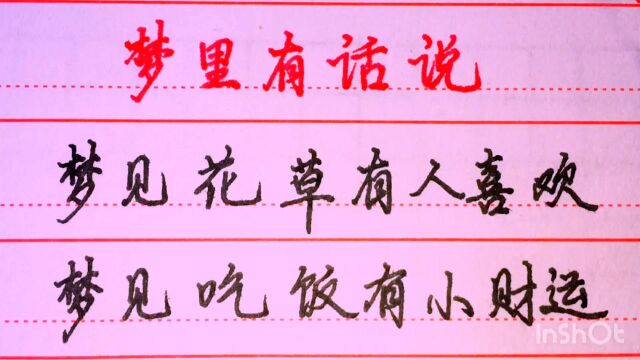 梦里有话说
梦见花草有人喜欢
梦见吃饭有小财运
InShOt